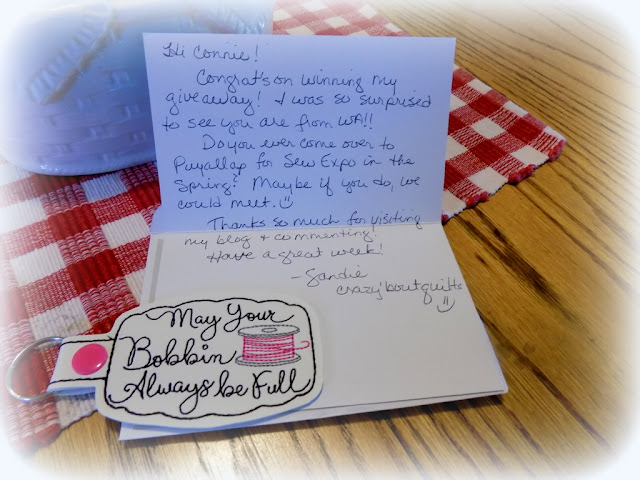 Hi Connie!
Congrat's on winning my
giveaway! I was so surprised
to see you are from WA!!
Do you ever come over to
Puyallap for Sew Expo in the
Spring? Maybe if you do, we
could meet. :)
Thanks so much for visiting
my blog & commenting!
Have a great week!
-Sandie
crazy'boutquilts
May Your
Bobbin
Always be Full